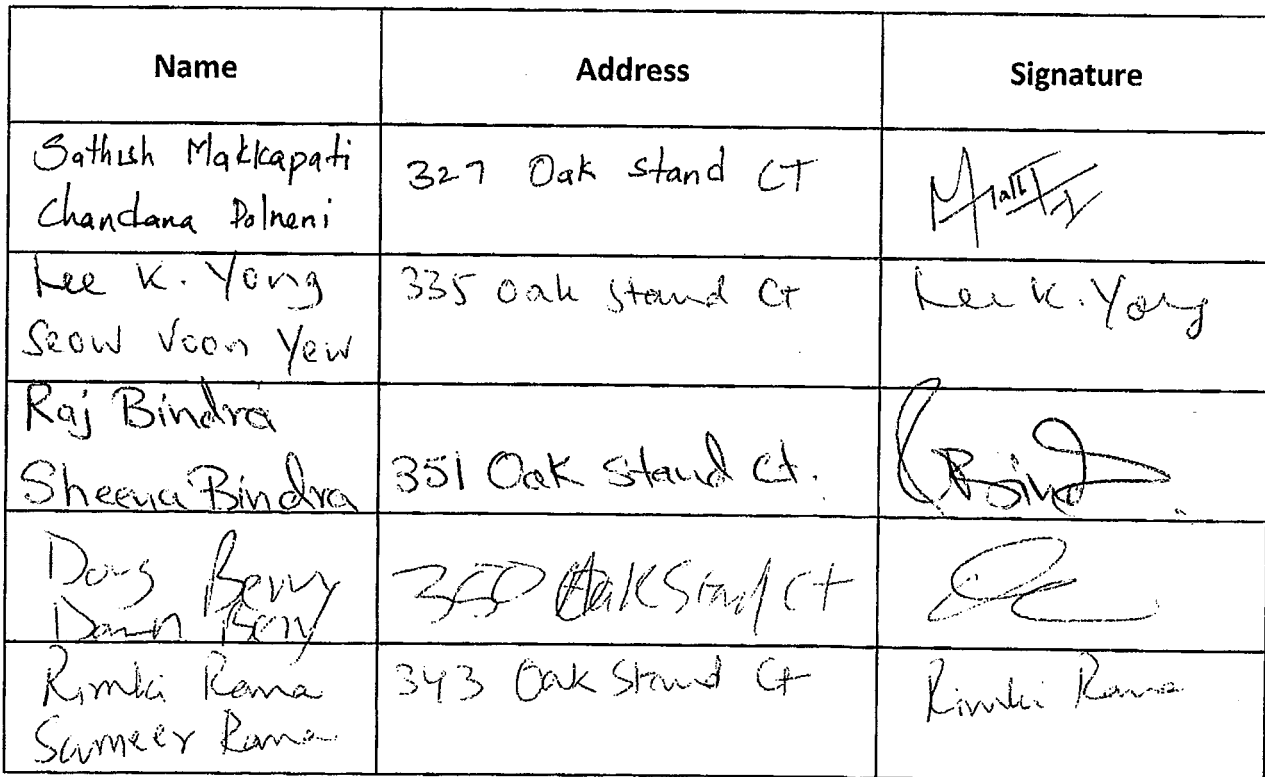 Name Address Signature
Sathish Makkapati
Chandana Polneni
327 Oak Stand CT
Lee K. Yong
Seow Voon Yew
335 Oak Stand Ct
Lee K. Yong
Raj Bindra
Sheena Bindra
351 Oak Stand Ct.
RBind
Doug Berry
Dawn Berry
350 Oak Stand Ct
Rimki Rana
Sameer Rana
343 Oak Stand Ct
Rimki Rana